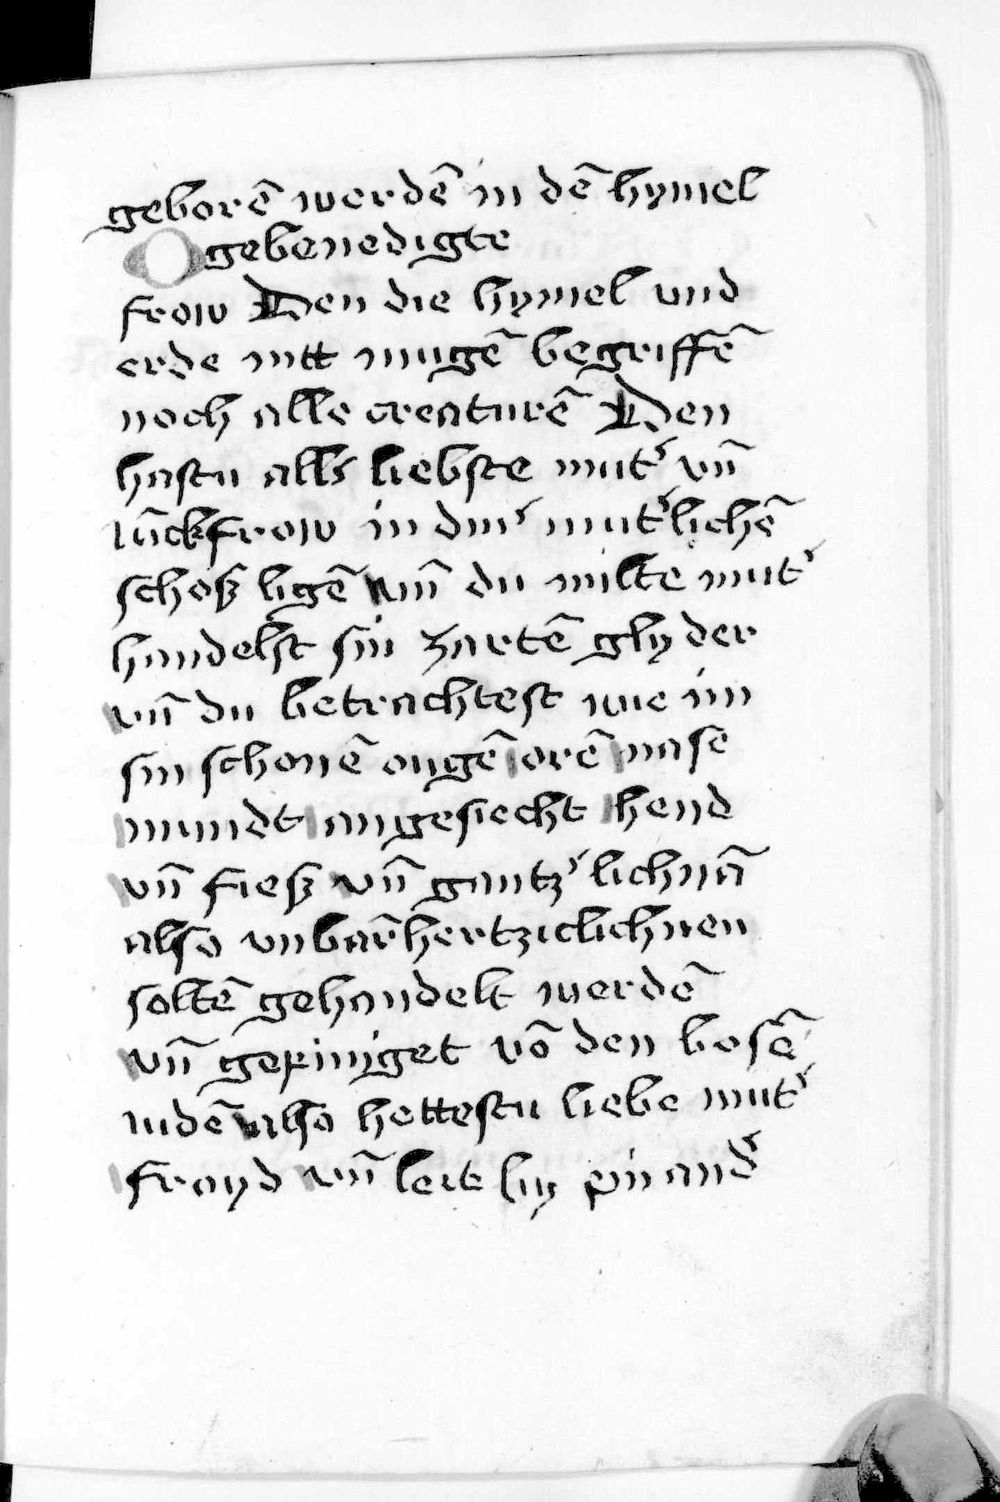 geborē werdē in dē hymel
O gebenedigte
frow Den die hymel vnd
erde nitt mugē begriffē
noch alle creaturē Den
hastu alls liebste mut' vn̄
iūckfrow in din' mut'lichē
schoß ligē vn̄ du milte mut'
handelst sin zartē glyder
vn̄ du betrachtest wie im
sin schonē ougē orē nase
mundt angesiecht hend
vn̄ fieß vn̄ gantz' lichnā
also vnbar̄hertziclichnen
soltē gehandelt werdē
vn̄ gepiniget vō den bosē
iudē also hettestu liebe mut'
froyd vn̄ leit by ein and'